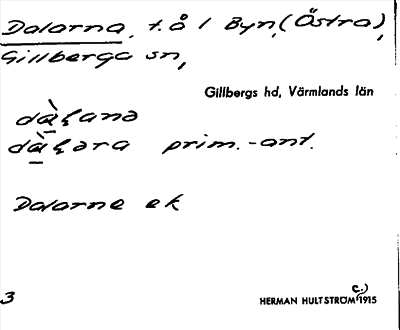 Dalarna, t.å i Byn, (Östra),
Gillberga sn,
Gillbergs hd, Värmlands län
prim.-ant.
Dalarne ek
3
HERMAN HULTSTRÖM c.) 1915